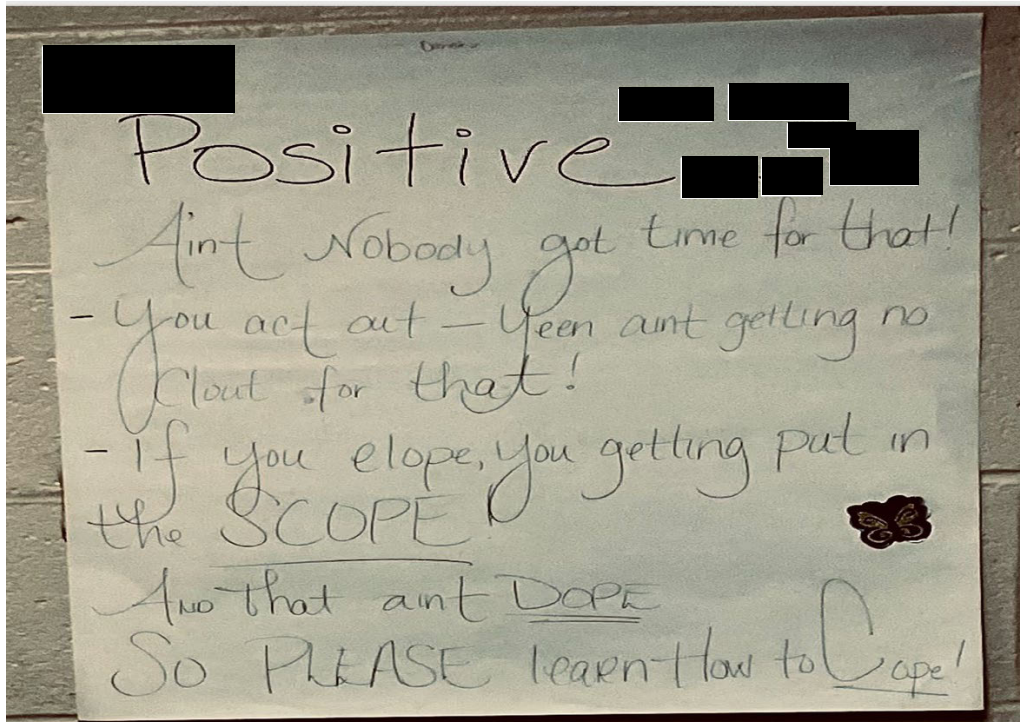 Positive
Aint Nobody got time for that!
- You act out - Yeen aint getting no
Clout for that!
- If you elope, you getting put in
the SCOPE!
And that aint DOPE
So PLEASE learn How to Cope!